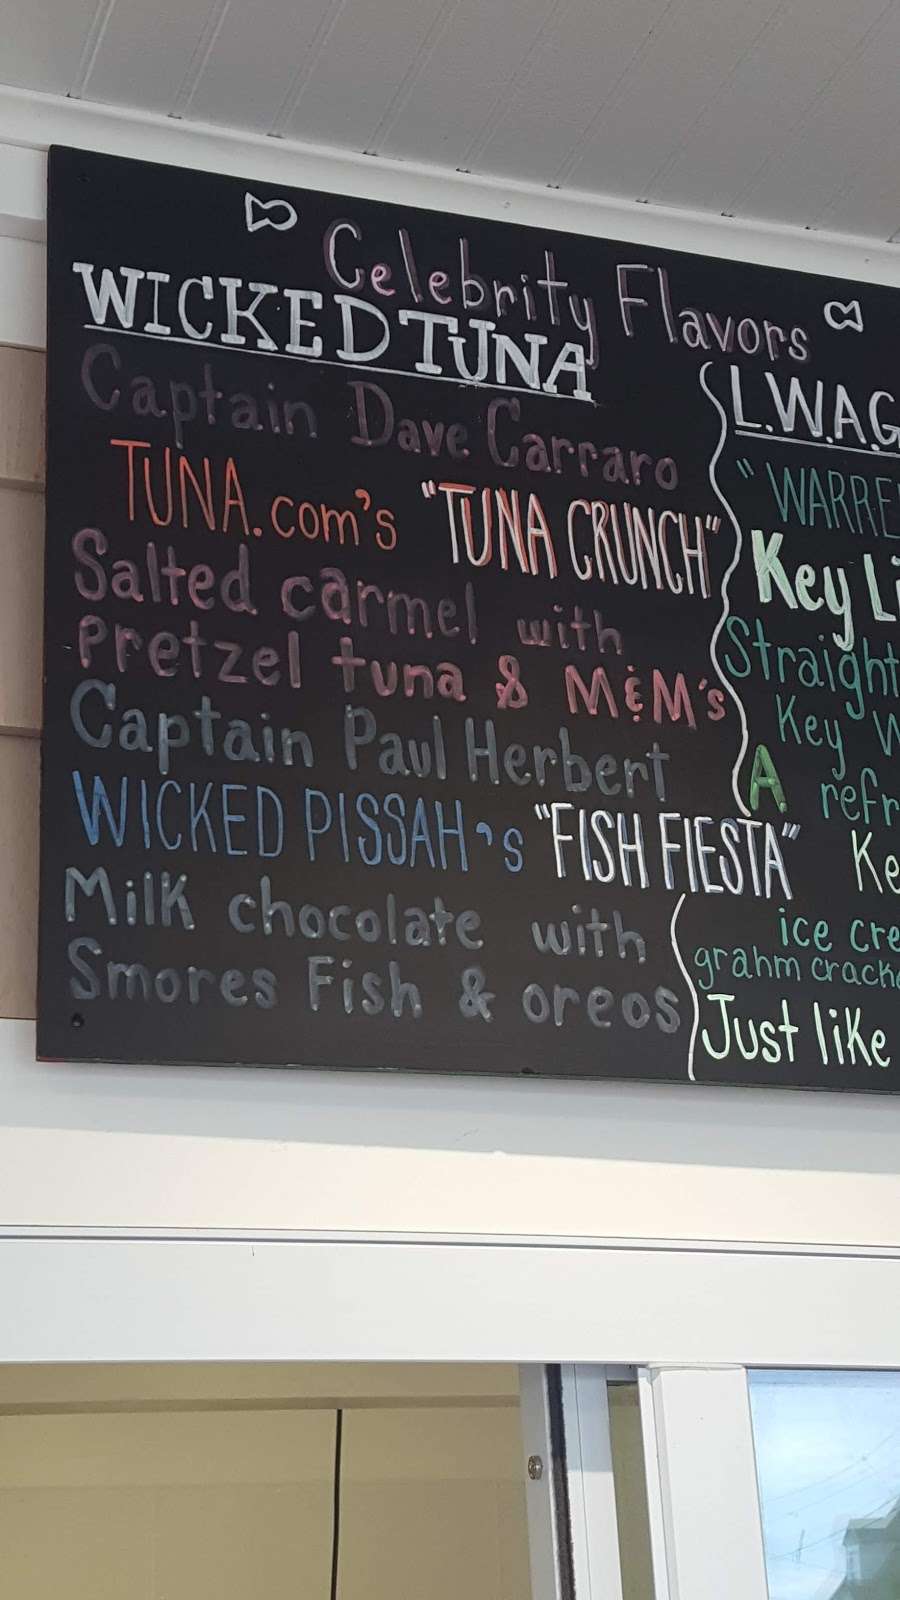 Celebrity Flavors
WICKED TUNA
Captain Dave Carraro
TUNA.com's "TUNA CRUNCH"
Salted carmel with
pretzel tuna & M&M's
Captain Paul Herbert
WICKED PISSAH's "FISH FIESTA"
Milk chocolate with
Smores Fish & oreos
L.W.A.G
"WARRE
Key Li
Straight
Key W
A refr
Ke
ice cre
grahm cracke
Just like